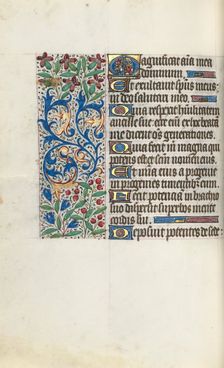 Magnificat anima mea
dominum.
Et exultavit spiritus meus:
in deo salutari meo.
Quia respexit humilitatem
ancille sue ecce enim ex hoc beata
me dicent omnes generationes.
Quia fecit michi magna qui
potens est et sanctum nomen eius.
Et mia eius a progenie
in progenies timentibus eum.
Fecit potenciam in brachio
suo dispersit superbos mente
cordis sui.
Deposuit potentes de sede: